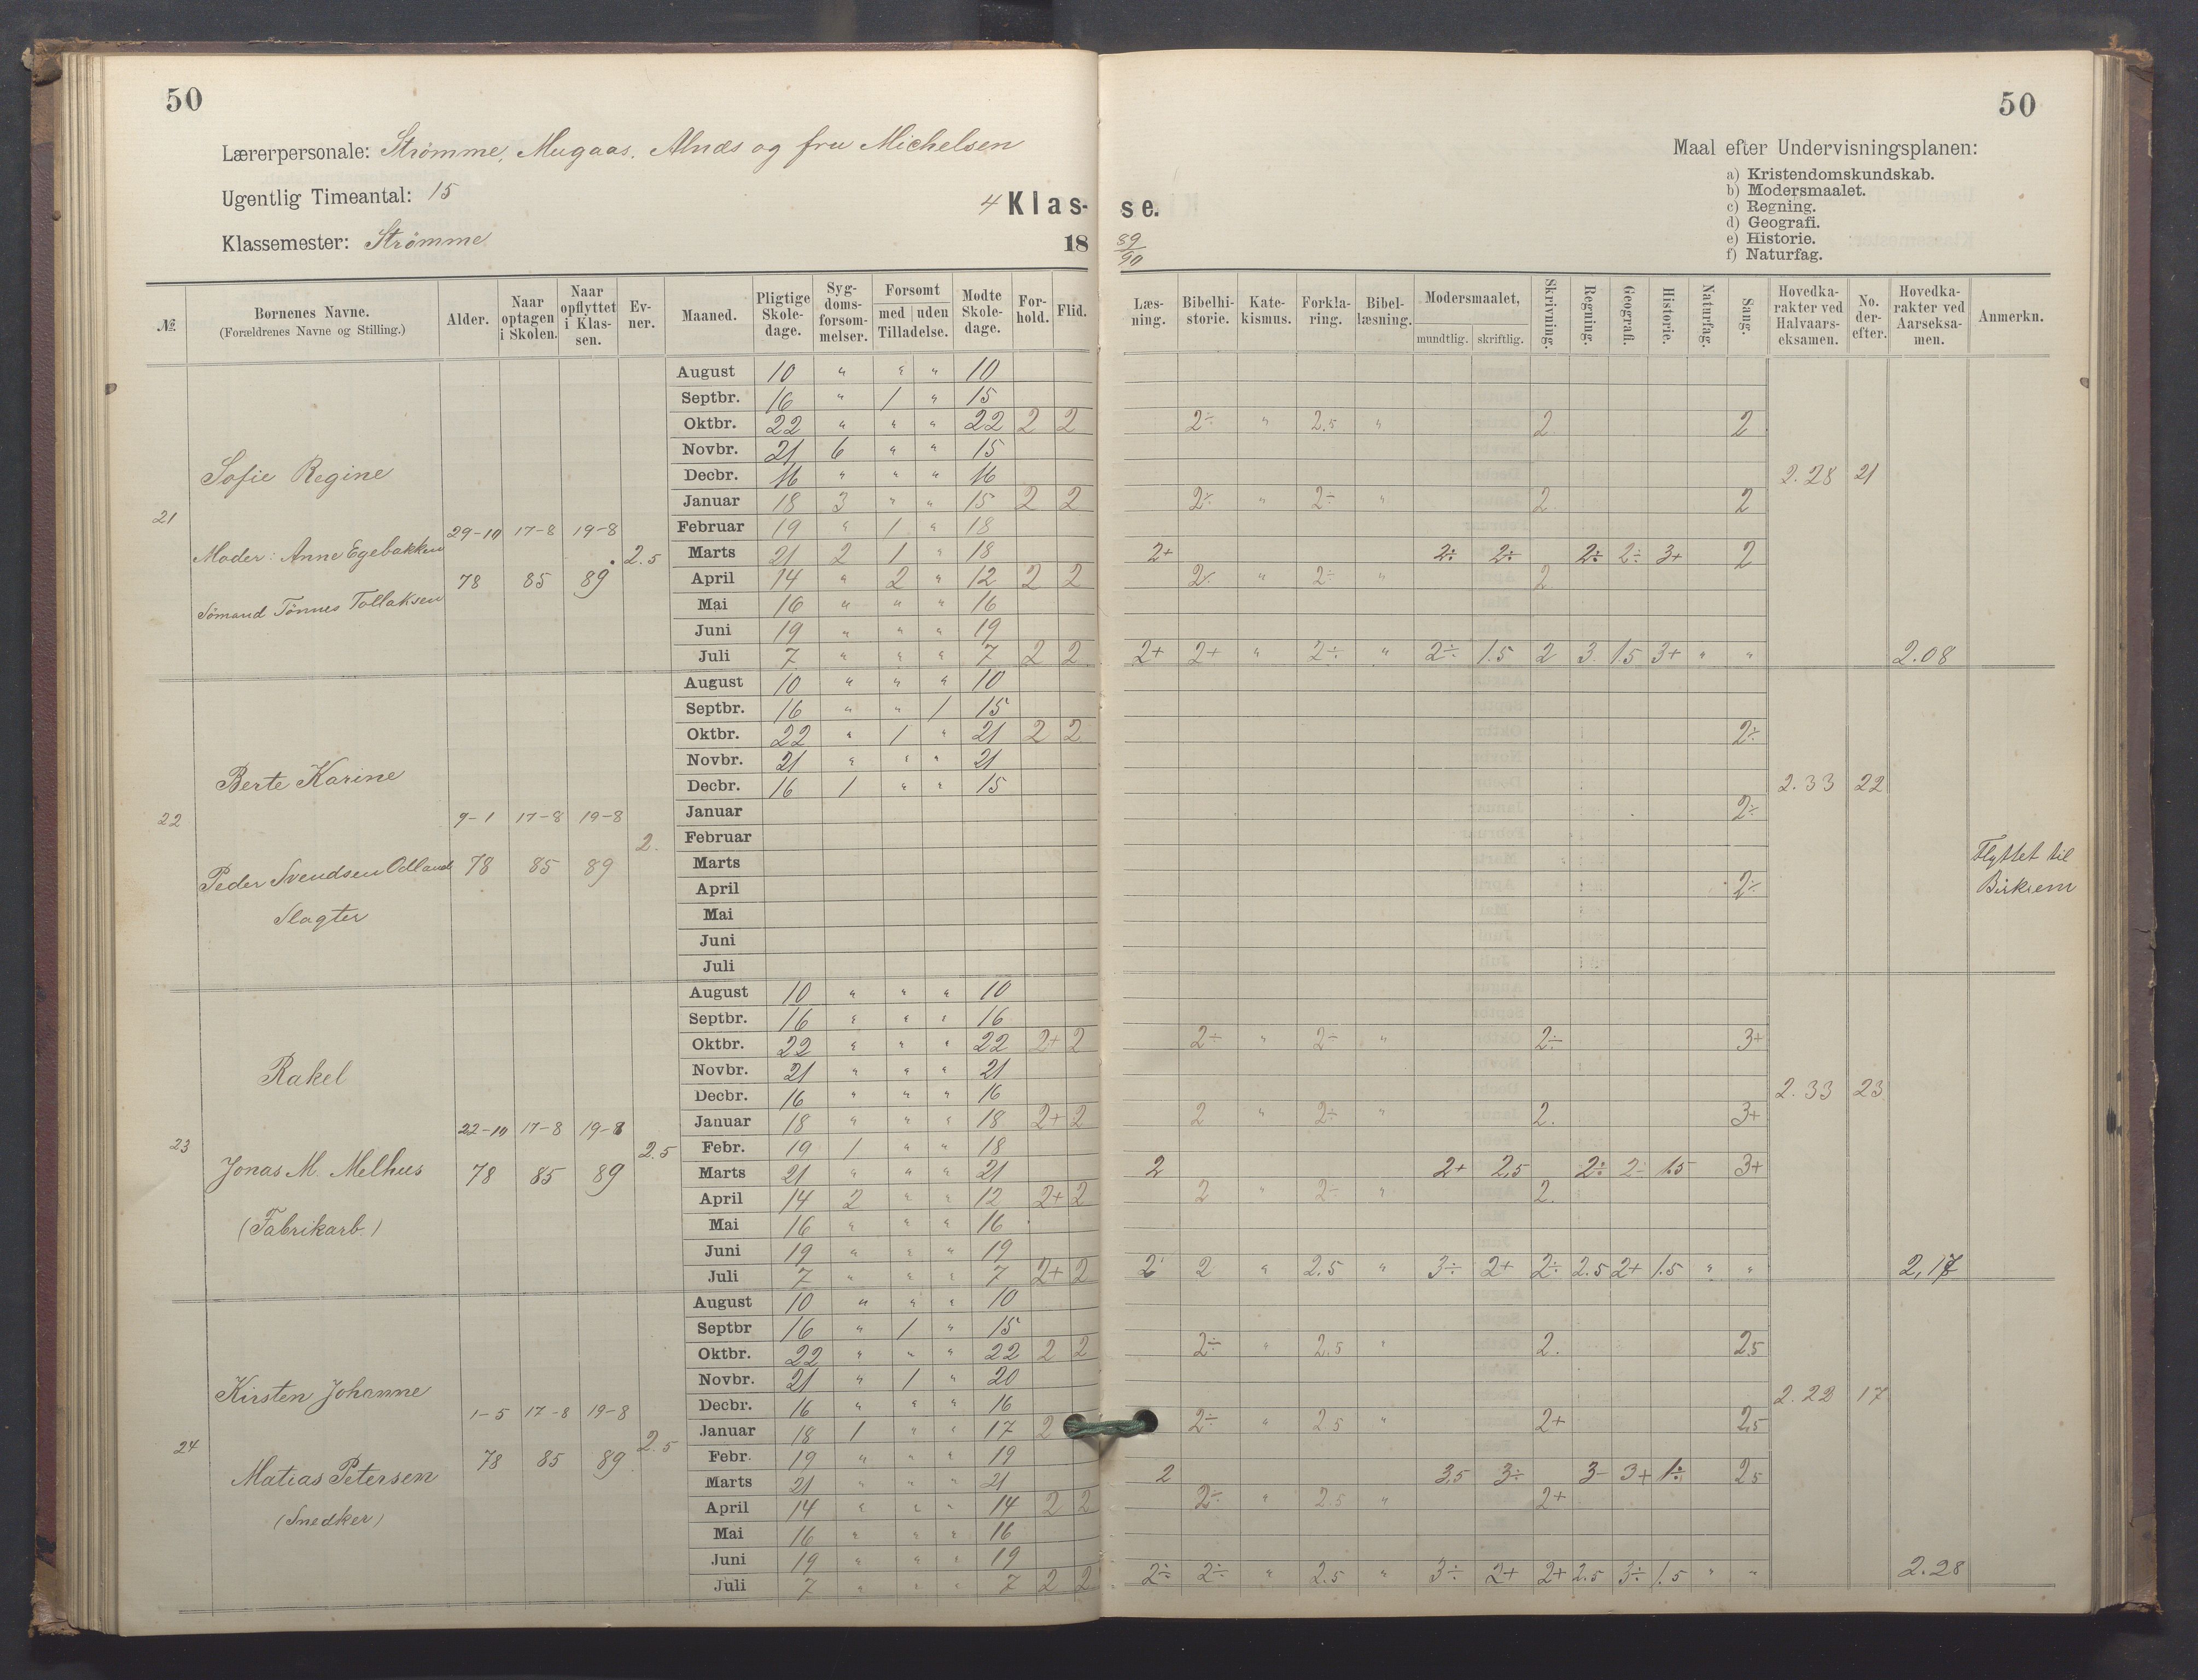 50
50
Lærerpersonale: Strømme, Mugaas, Alnæs og fru Michelsen
Ugentlig Timeantal: 15
Klassemester: Strømme
4 Klas- se.
18 89/90
Maal efter Undervisningsplanen:
a) Kristendomskundskab.
b) Modersmaalet.
c) Regning.
d) Geografi.
e) Historie.
f) Naturfag.
№ Børnenes Navne. (Forældrenes Navne og Stilling.) Alder. Naar optagen i Skolen. Naar opflyttet i Klassen. Evner. Maaned. Pligtige Skoledage. Sygdomsforsømmelser. Forsømt med uden Tilladelse. Mødte Skoledage. Forhold. Flid. Læsning. Bibelhistorie. Katekismus. Forklaring. Bibellæsning. Modersmaalet, mundtlig. skriftlig. Skrivning. Regning. Geografi. Historie. Naturfag. Sang. Hovedkarakter ved Halvaarseksamen. No. derefter. Hovedkarakter ved Aarseksamen. Anmerkn.
21
Sofie Regine
Moder: Anne Egebakken
Sømand Tønnes Tollaksen
29-10 78 17-8 85 19-8 89 2.5
August 10 " " " 10
Septbr. 16 " 1 " 15
Oktbr. 22 " " " 22 2 2 2÷ " 2.5 " 2 2
Novbr. 21 6 " " 15
Decbr. 16 " " " 16
2.28 21
Januar 18 3 " " 15 2 2 2÷ " 2÷ " 2 2
Februar 19 " 1 " 18
Marts 21 2 1 " 18 2+ 2÷ 2÷ 2÷ 2÷ 3+ 2
April 14 " 2 " 12 2 2 2÷ " 2÷ " 2
Mai 16 " " " 16
Juni 19 " " " 19
Juli 7 " " " 7 2 2 2+ 2+ " 2÷ " 2÷ 1.5 2 3 1.5 3+ " " 2.08
22
Berte Karine
Peder Svendsen Odland
Slagter
9-1 78 17-8 85 19-8 89 2.
August 10 " " " 10
Septbr. 16 " " 1 15
Oktbr. 22 " 1 " 21 2 2 2÷
Novbr. 21 " " " 21
Decbr. 16 1 " " 15
2.33 22
Januar 2÷
Februar
Marts
April 2÷
Mai
Juni
Juli
Flyttet til
Birkrem
23
Rakel
Jonas M. Melhus
(Fabrikarb.)
22-10 78 17-8 85 19-8 89 2.5
August 10 " " " 10
Septbr. 16 " " " 16
Oktbr. 22 " " " 22 2+ 2 2÷ " 2÷ " 2÷ 3+
Novbr. 21 " " " 21
Decbr. 16 " " " 16
2.33 23
Januar 18 " " " 18 2+ 2 2 " 2÷ " 2. 3+
Febr. 19 1 " " 18
Marts 21 " " " 21 2 2+ 2,5 2÷ 2÷ 1.5 3+
April 14 2 " " 12 2+ 2 2 " 2÷ " 2.
Mai 16 " " " 16
Juni 19 " " " 19
Juli 7 " " " 7 2+ 2 2 2 " 2.5 " 3÷ 2+ 2÷ 2.5 2+ 1.5 " "
24
Kirsten Johanne
Matias Petersen
(Snedker)
1-5 78 17-8 85 19-8 89 2.5
August 10 " " " 10
Septbr 16 " 1 " 15
Oktbr. 22 " " " 22 2 2 2÷ " 2.5 " 2. 2.5
Novbr. 21 " 1 " 20
Decbr. 16 " " " 16
2.22 17
Januar 18 1 " " 17 2 2÷ " 2.5 " 2+ 2,5
Febr. 19 " " " 19
Marts 21 " " " 21 2 3,5 3÷ 3- 3+ 1÷ 2.5
April 14 " " " 14 2 2 2÷ " 2.5 " 2+
Mai 16 " " " 16
Juni 19 " " " 19
Juli 7 " " " 7 2 2 2÷ 2÷ " 2.5 " 3÷ 2+ 2+ 2.5 3÷ 1.5 " " 2.28